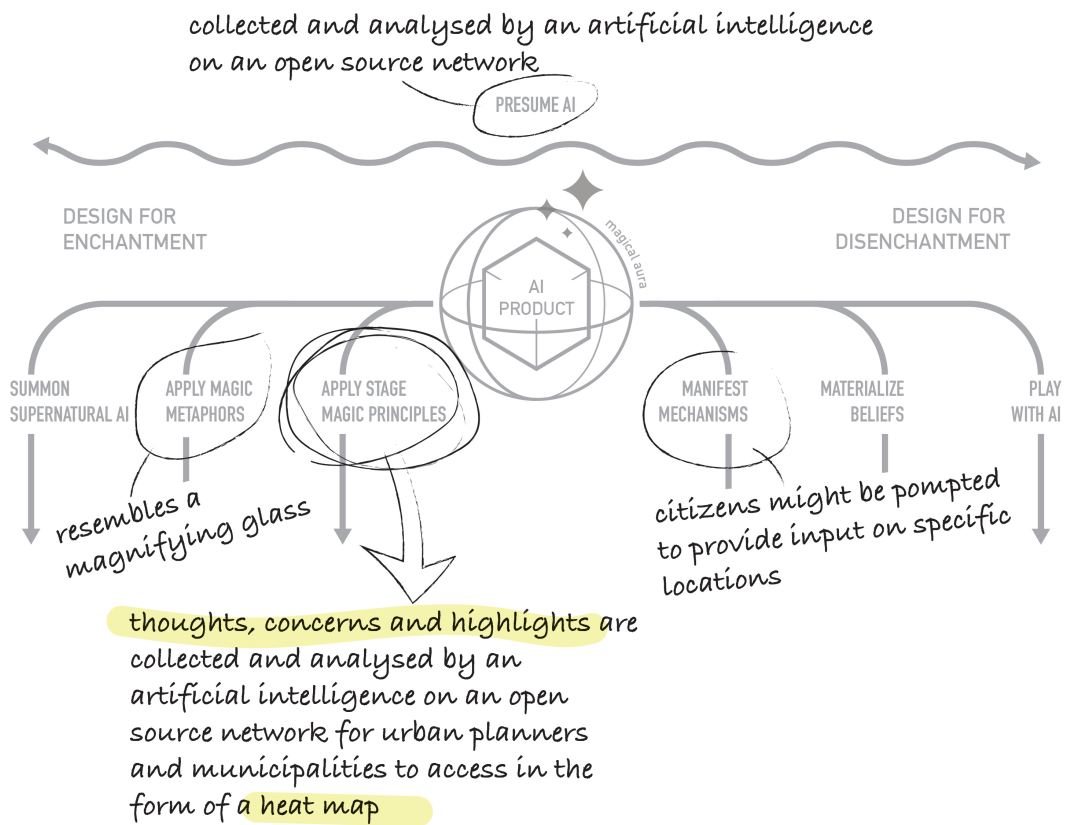 collected and analysed by an artificial intelligence
on an open source network
PRESUME AI
DESIGN FOR
ENCHANTMENT
DESIGN FOR
DISENCHANTMENT
magical aura
AI
PRODUCT
SUMMON
SUPERNATURAL AI
APPLY MAGIC
METAPHORS
APPLY STAGE
MAGIC PRINCIPLES
MANIFEST
MECHANISMS
MATERIALIZE
BELIEFS
PLAY
WITH AI
resembles a
magnifying glass
citizens might be pompted
to provide input on specific
locations
thoughts, concerns and highlights are
collected and analysed by an
artificial intelligence on an open
source network for urban planners
and municipalities to access in the
form of a heat map